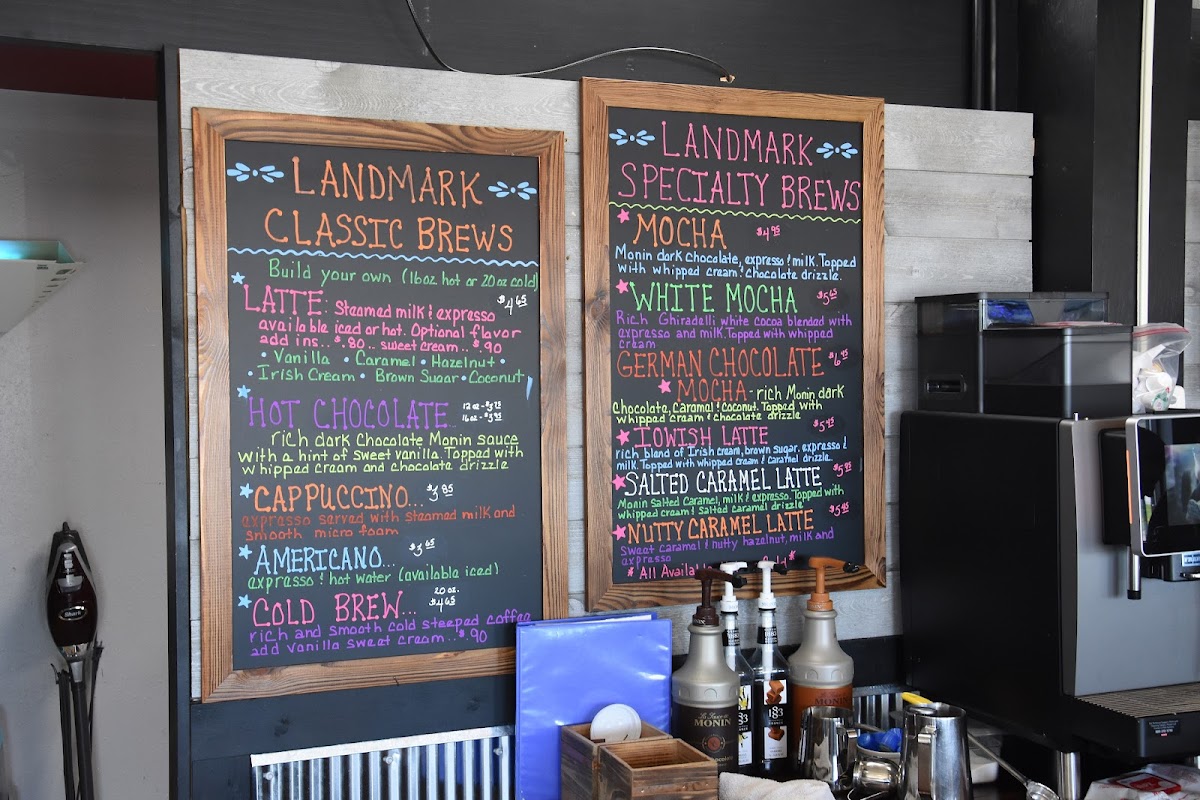 LANDMARK
CLASSIC BREWS
Build your own (16oz hot or 20 oz cold)
LATTE: Steamed milk & expresso $4.65
available iced or hot. Optional flavor
add ins.. $.80.. sweet cream.. $.90
• Vanilla • Caramel • Hazelnut •
• Irish Cream • Brown Sugar • Coconut
HOT CHOCOLATE...
rich dark chocolate Monin sauce
with a hint of sweet vanilla. Topped with
whipped cream and chocolate drizzle
CAPPUCCINO... $3.85
expresso served with steamed milk and
smooth micro foam
AMERICANO... $3.65
expresso & hot water (available iced)
COLD BREW... 20 oz. $4.65
rich and smooth cold steeped coffee
add vanilla sweet cream.. $.90
LANDMARK
SPECIALTY BREWS
MOCHA $4.95
Monin dark chocolate, expresso & milk. Topped
with whipped cream & chocolate drizzle.
WHITE MOCHA $5.45
Rich Ghiradelli white cocoa blended with
expresso and milk. Topped with whipped
cream
GERMAN CHOCOLATE
MOCHA - rich Monin dark
chocolate, caramel & coconut. Topped with
whipped cream & chocolate drizzle
IOWISH LATTE $5.45
rich blend of Irish cream, brown sugar, expresso &
milk. Topped with whipped cream & caramel drizzle
SALTED CARAMEL LATTE $5.45
Monin Salted Caramel, milk & expresso. Topped with
whipped cream & salted caramel drizzle
NUTTY CARAMEL LATTE $5.45
Sweet caramel & nutty hazelnut, milk and
expresso
* All
Shark
MONIN
1883
MONIN